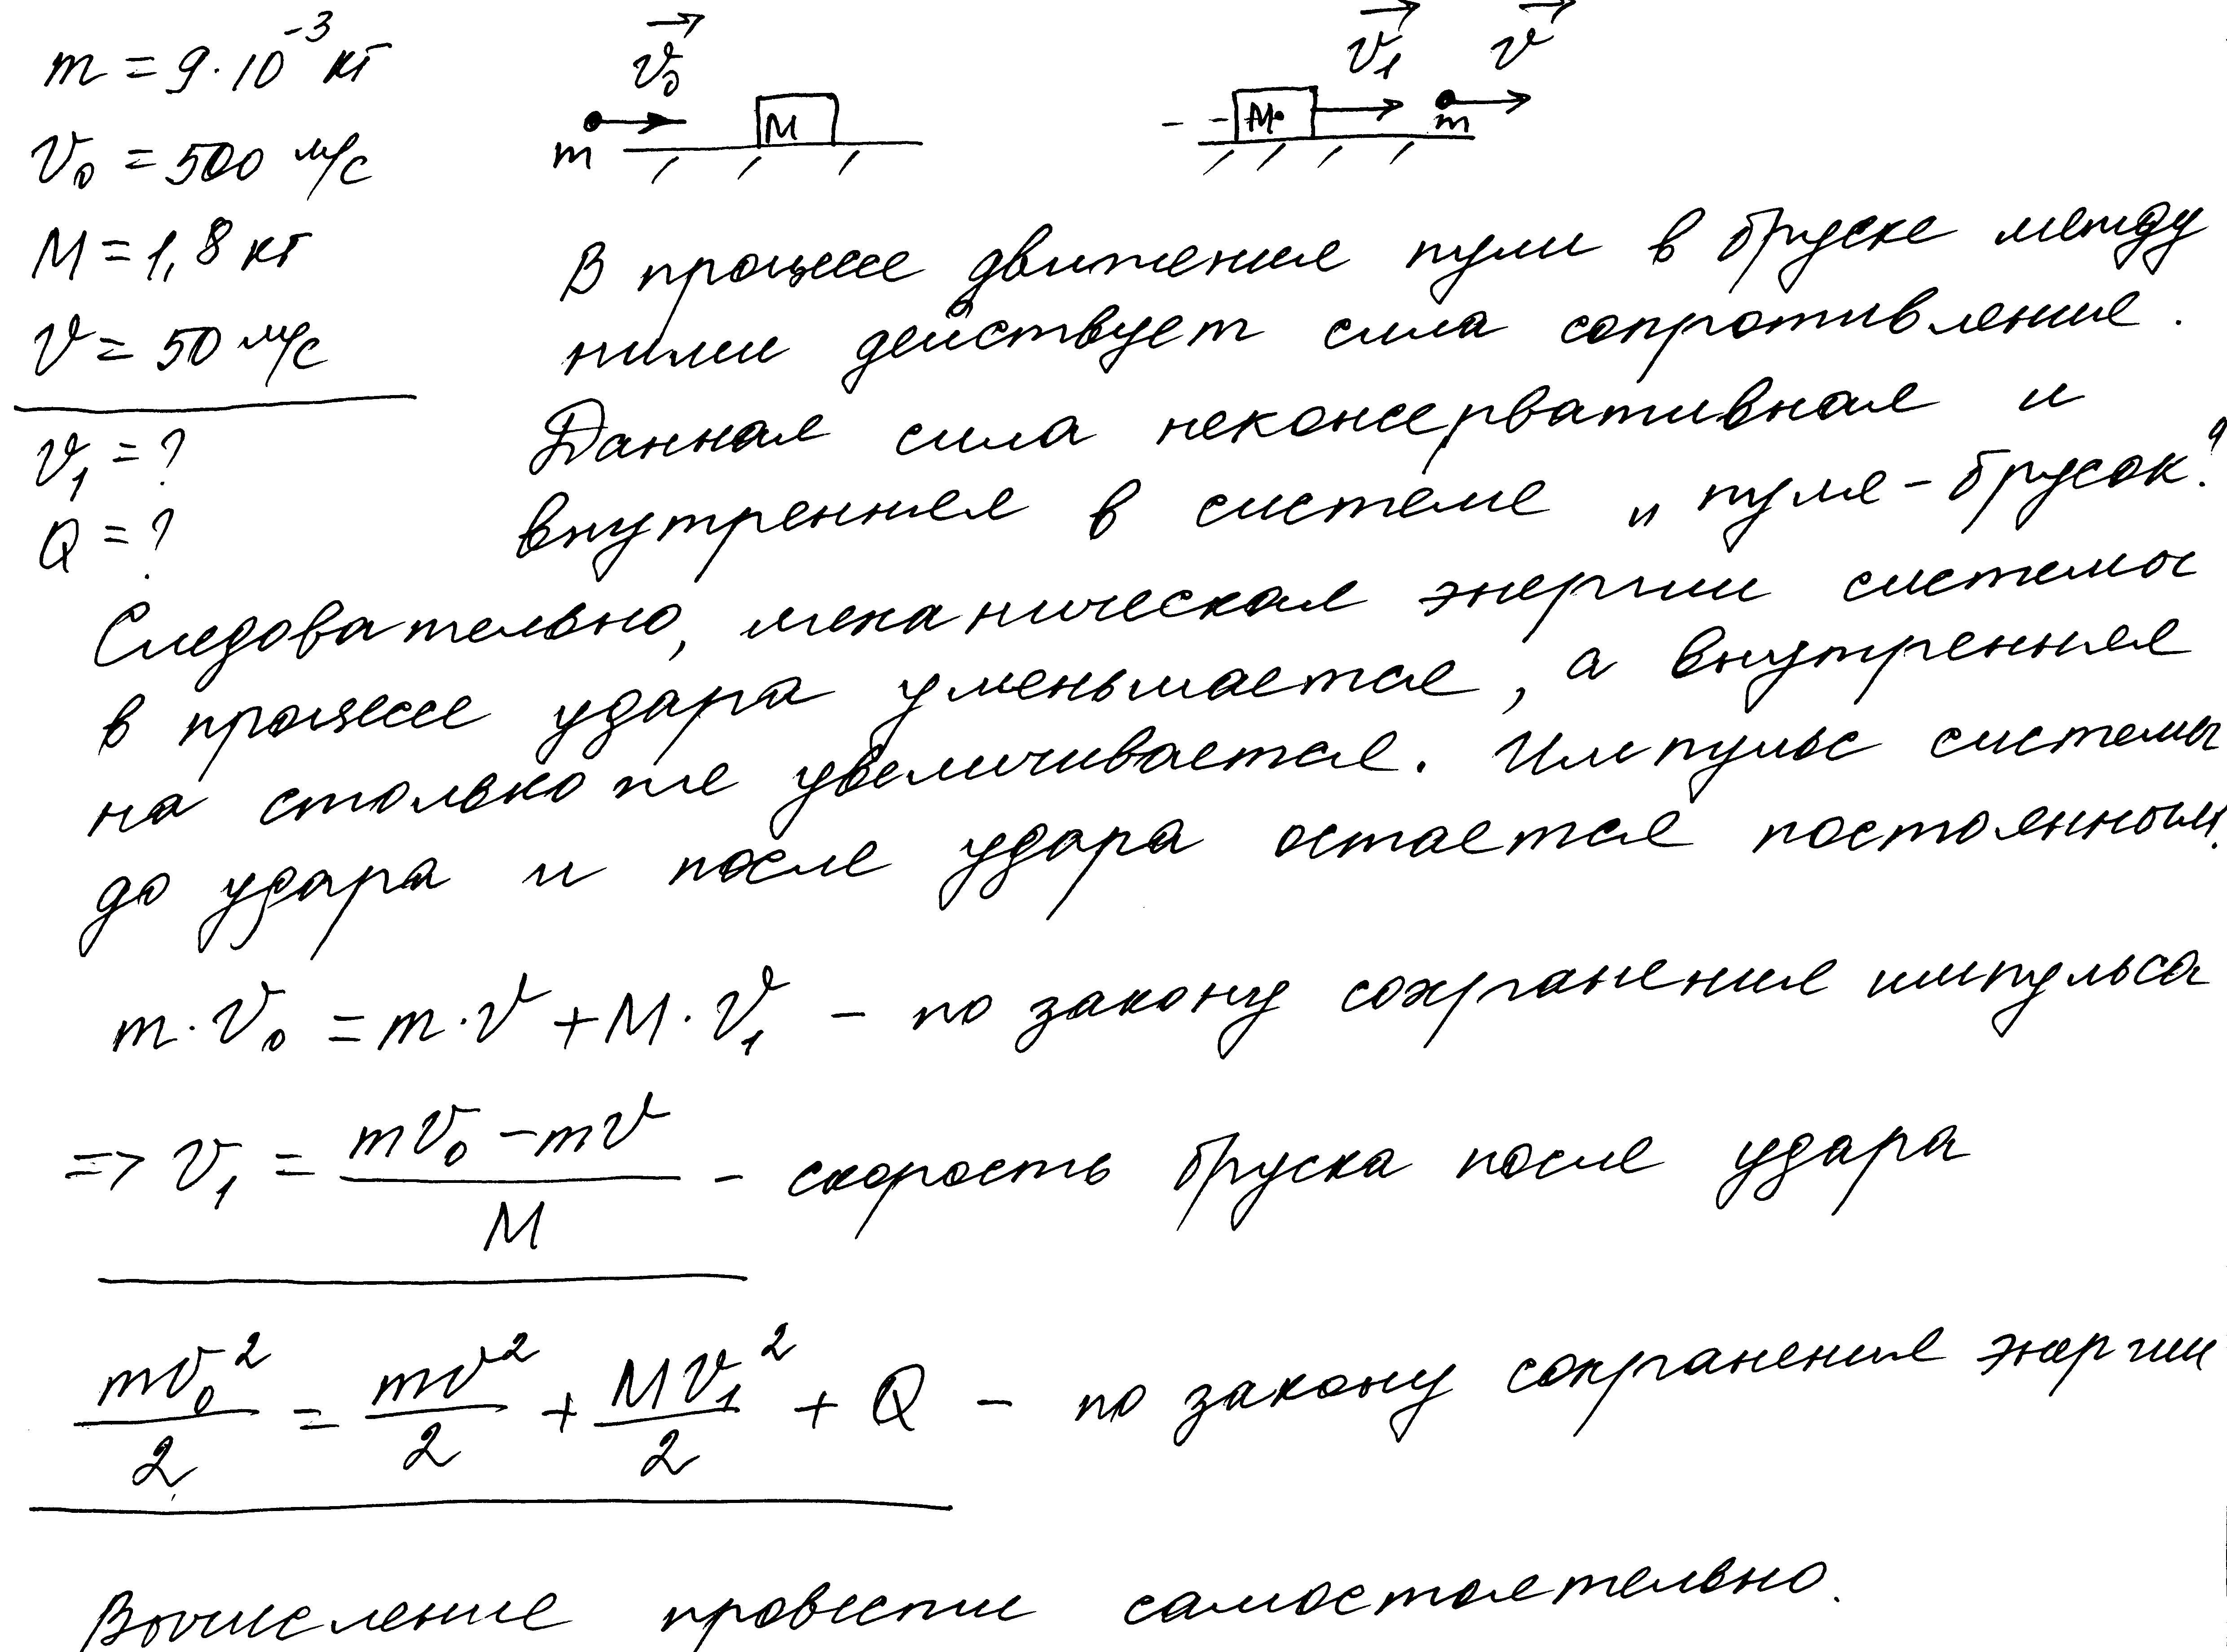 m = 9·10⁻³ кг
v₀ = 500 м/с
M = 1,8 кг
v = 50 м/с
v₁ = ?
Q = ?
v₀ v₁ v
m M M m
В процессе движения пули в бруске между
ними действует сила сопротивления.
Данная сила неконсервативная и
внутренняя в системе „пуля-брусок".
Следовательно, механическая энергии системы
в процессе удара уменьшается, а внутренняя
на столько же увеличивается. Импульс системы
до удара и после удара остается постоянным.
m·v₀ = m·v + M·v₁ – по закону сохранения импульса
=> v₁ = (mv₀ – mv)/M – скорость бруска после удара
mv₀²/2 = mv²/2 + Mv₁²/2 + Q – по закону сохранения энергии
Вычисление провести самостоятельно.